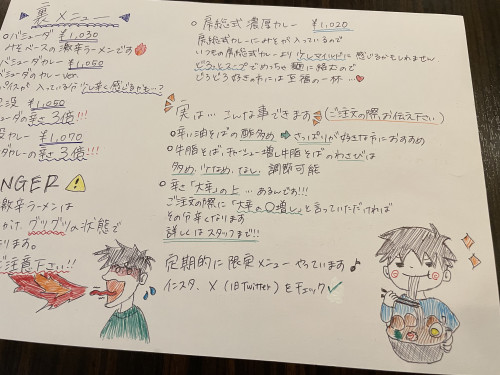 裏メニュー
○バミューダ ¥1,030
みそベースの激辛ラーメンです
バミューダカレー ¥1,050
ミューダのカレーver.
パイスが入っている分少し辛く感じるかも…?
没 ¥1,050
ューダの辛さ3倍!!!
没カレー ¥1,070
ダカレーの辛さ3倍!!!
NGER
激辛ラーメンは
かけ、グツグツの状態で
ります。
ご注意下さい!!
房総式 濃厚カレー ¥1,020
房総式カレーにみそが入っているので
いつもの房総式カレーより少しマイルドに感じるかもしれません
どろっとスープでめっちゃ麺に絡むので
どろどろ好きの方には至福の一杯…♥
実は… こんな事できます (ご注文の際、お伝え下さい)
○辛い油そばの酢多め ➡ さっぱりが好きな方におすすめ
○牛脂そば、チャーシュー増し牛脂そばのわさびは
多め、少なめ、なし、調節可能
○辛さ「大辛」の上…あるんです!!!
ご注文の際に「大辛の〇増し」と言っていただければ
その分辛くなります
詳しくはスタッフまで!!!
定期的に限定メニューやっています♪
インスタ、X(旧Twitter)をチェック✓